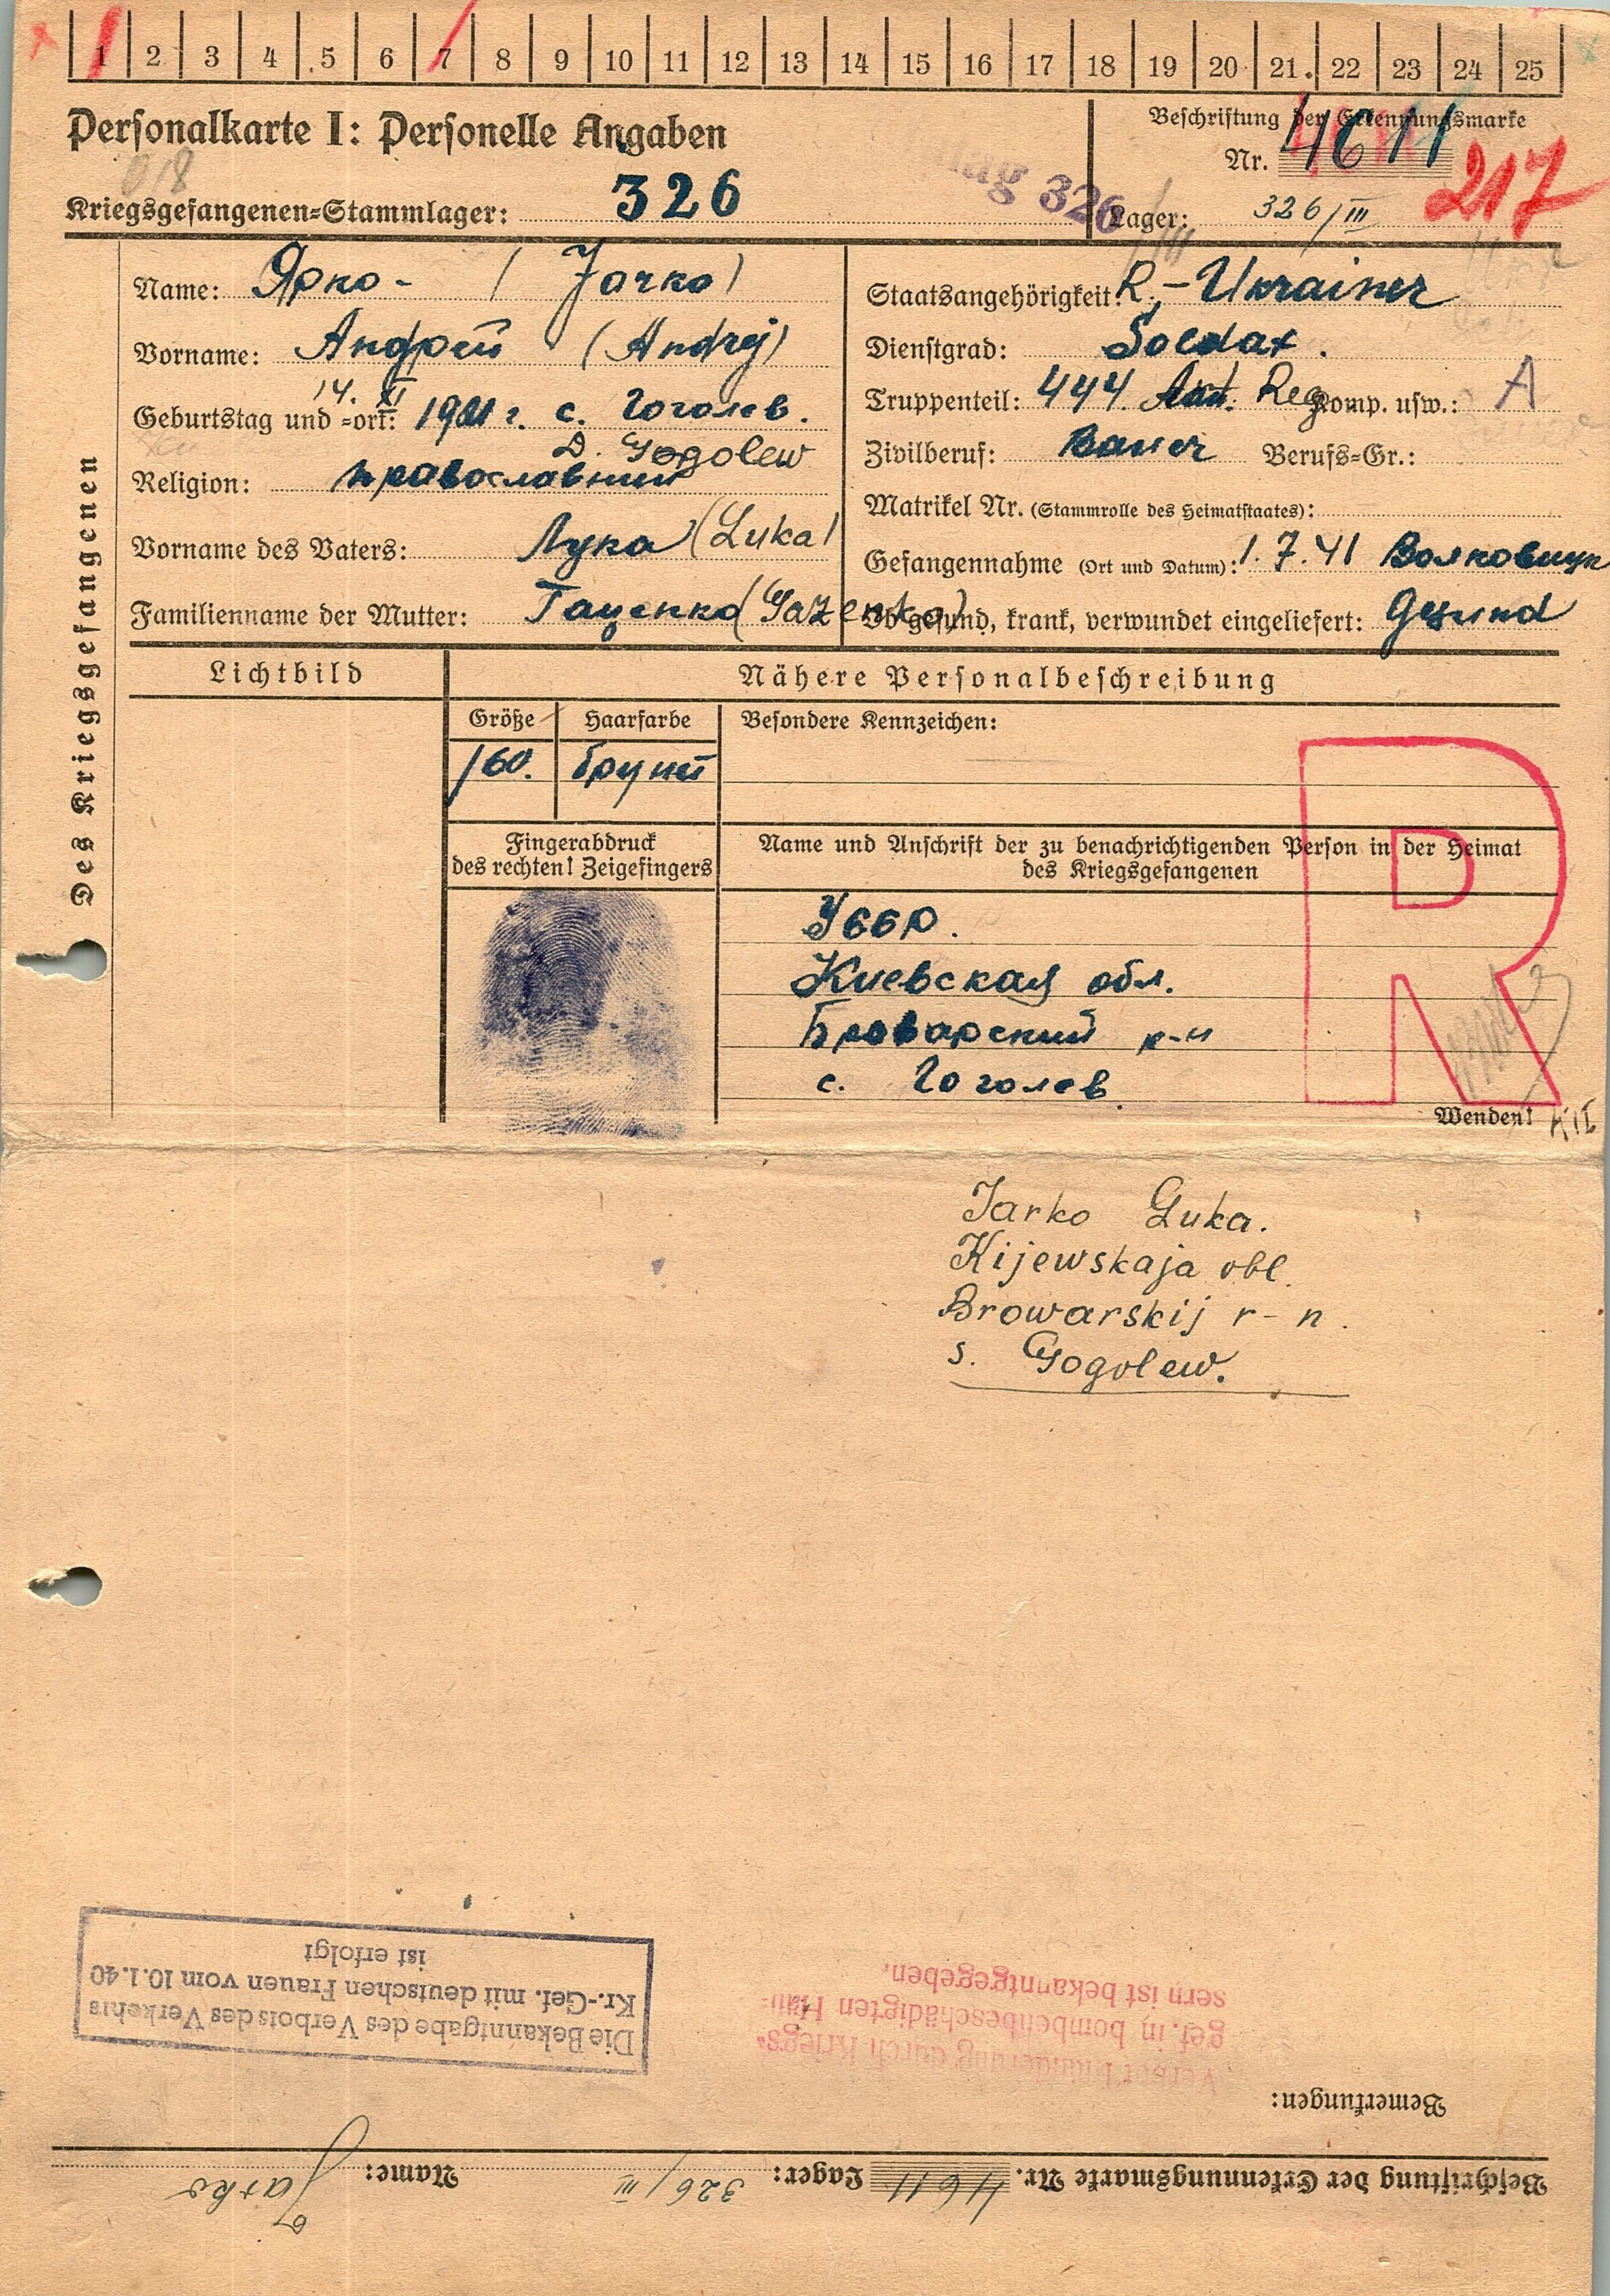 1 2 3 4 5 6 7 8 9 10 11 12 13 14 15 16 17 18 19 20 21. 22 23 24 25
Personalkarte I: Personelle Angaben
Beschriftung der Erkennungsmarke
Nr. 4611
217
Kriegsgefangenen=Stammlager: 326
326
Lager: 326/III
Des Kriegsgefangenen
Name: Ярко - (Jarko)
Vorname: Андрей (Andrej)
14. XI
Geburtstag und =ort: 1901 г. с. Гоголев.
D. Gogolew
Religion: православний
Vorname des Vaters: Лука (Luka)
Familienname der Mutter: Гаценко (Gazenko)
Staatsangehörigkeit: R.-Ukrainer
Dienstgrad: Soldat.
Truppenteil: 444 Reg Komp. usw.: A
Zivilberuf: Bauer Berufs=Gr.:
Matrikel Nr. (Stammrolle des Heimatstaates):
Gefangennahme (Ort und Datum): 1.7.41
Ob gesund, krank, verwundet eingeliefert: Gesund
Lichtbild
Nähere Personalbeschreibung
Größe Haarfarbe Besondere Kennzeichen:
160.
Fingerabdruck
des rechten! Zeigefingers
Name und Anschrift der zu benachrichtigenden Person in der Heimat
des Kriegsgefangenen
R
Киевская обл.
Броварский р-н
с. Гоголев
Wenden!
Jarko Luka.
Kijewskaja obl.
Browarskij r-n.
s. Gogolew.
Beschriftung der Erkennungsmarke Nr. 4611 Lager: 326/III Name: Jarko
Bemerkungen:
Verbot Plünderung durch Kriegs-
gef. in bombenbeschädigten Häu-
sern ist bekanntgegeben.
Die Bekanntgabe des Verbots des Verkehrs
Kr.-Gef. mit deutschen Frauen vom 10.1.40
ist erfolgt